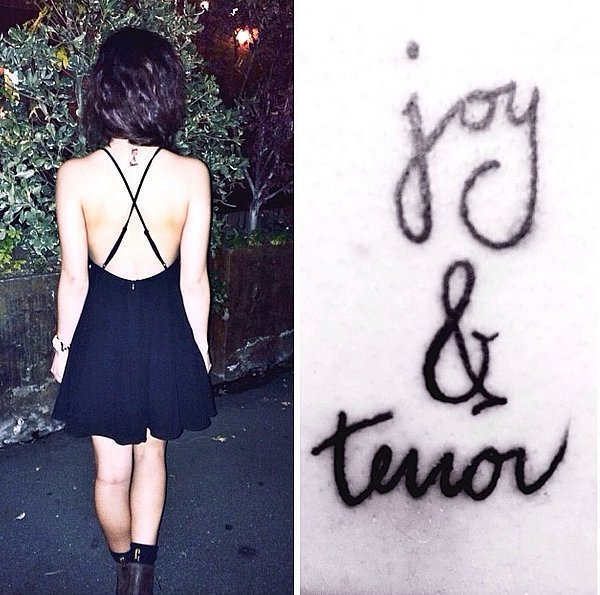 joy
&
terror